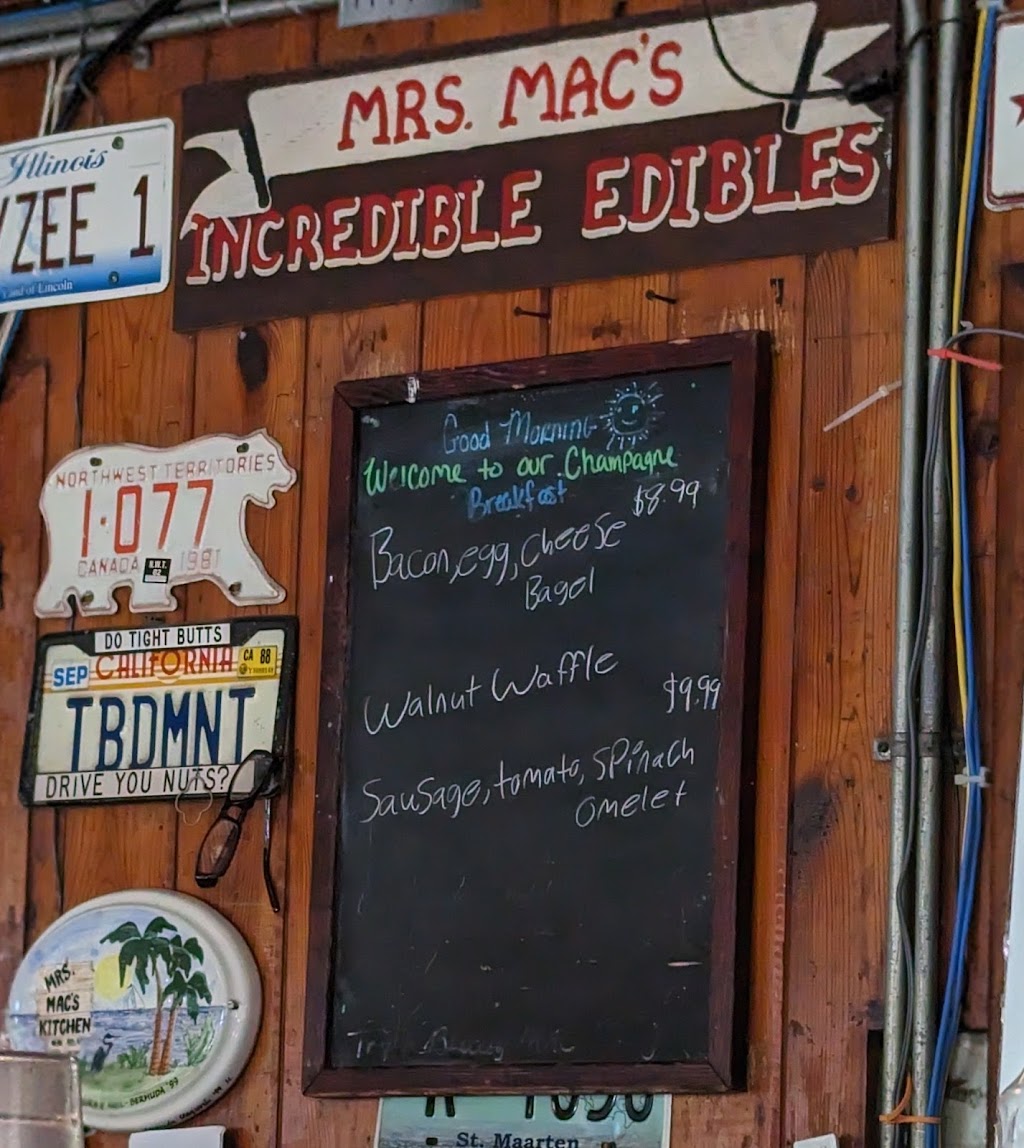 MRS. MAC'S
INCREDIBLE EDIBLES
Illinois
ZEE 1
Land of Lincoln
Good Morning
Welcome to our Champagne
Breakfast
$8.99
Bacon, egg, cheese
Bagel
Walnut Waffle
$9.99
Sausage, tomato, spinach
omelet
NORTHWEST TERRITORIES
1·077
CANADA 1981
N.W.T.
82
DO TIGHT BUTTS
SEP CALIFORNIA CA 88
TBDMNT
DRIVE YOU NUTS?
MRS.
MAC'S
KITCHEN
BERMUDA '99
St. Maarten